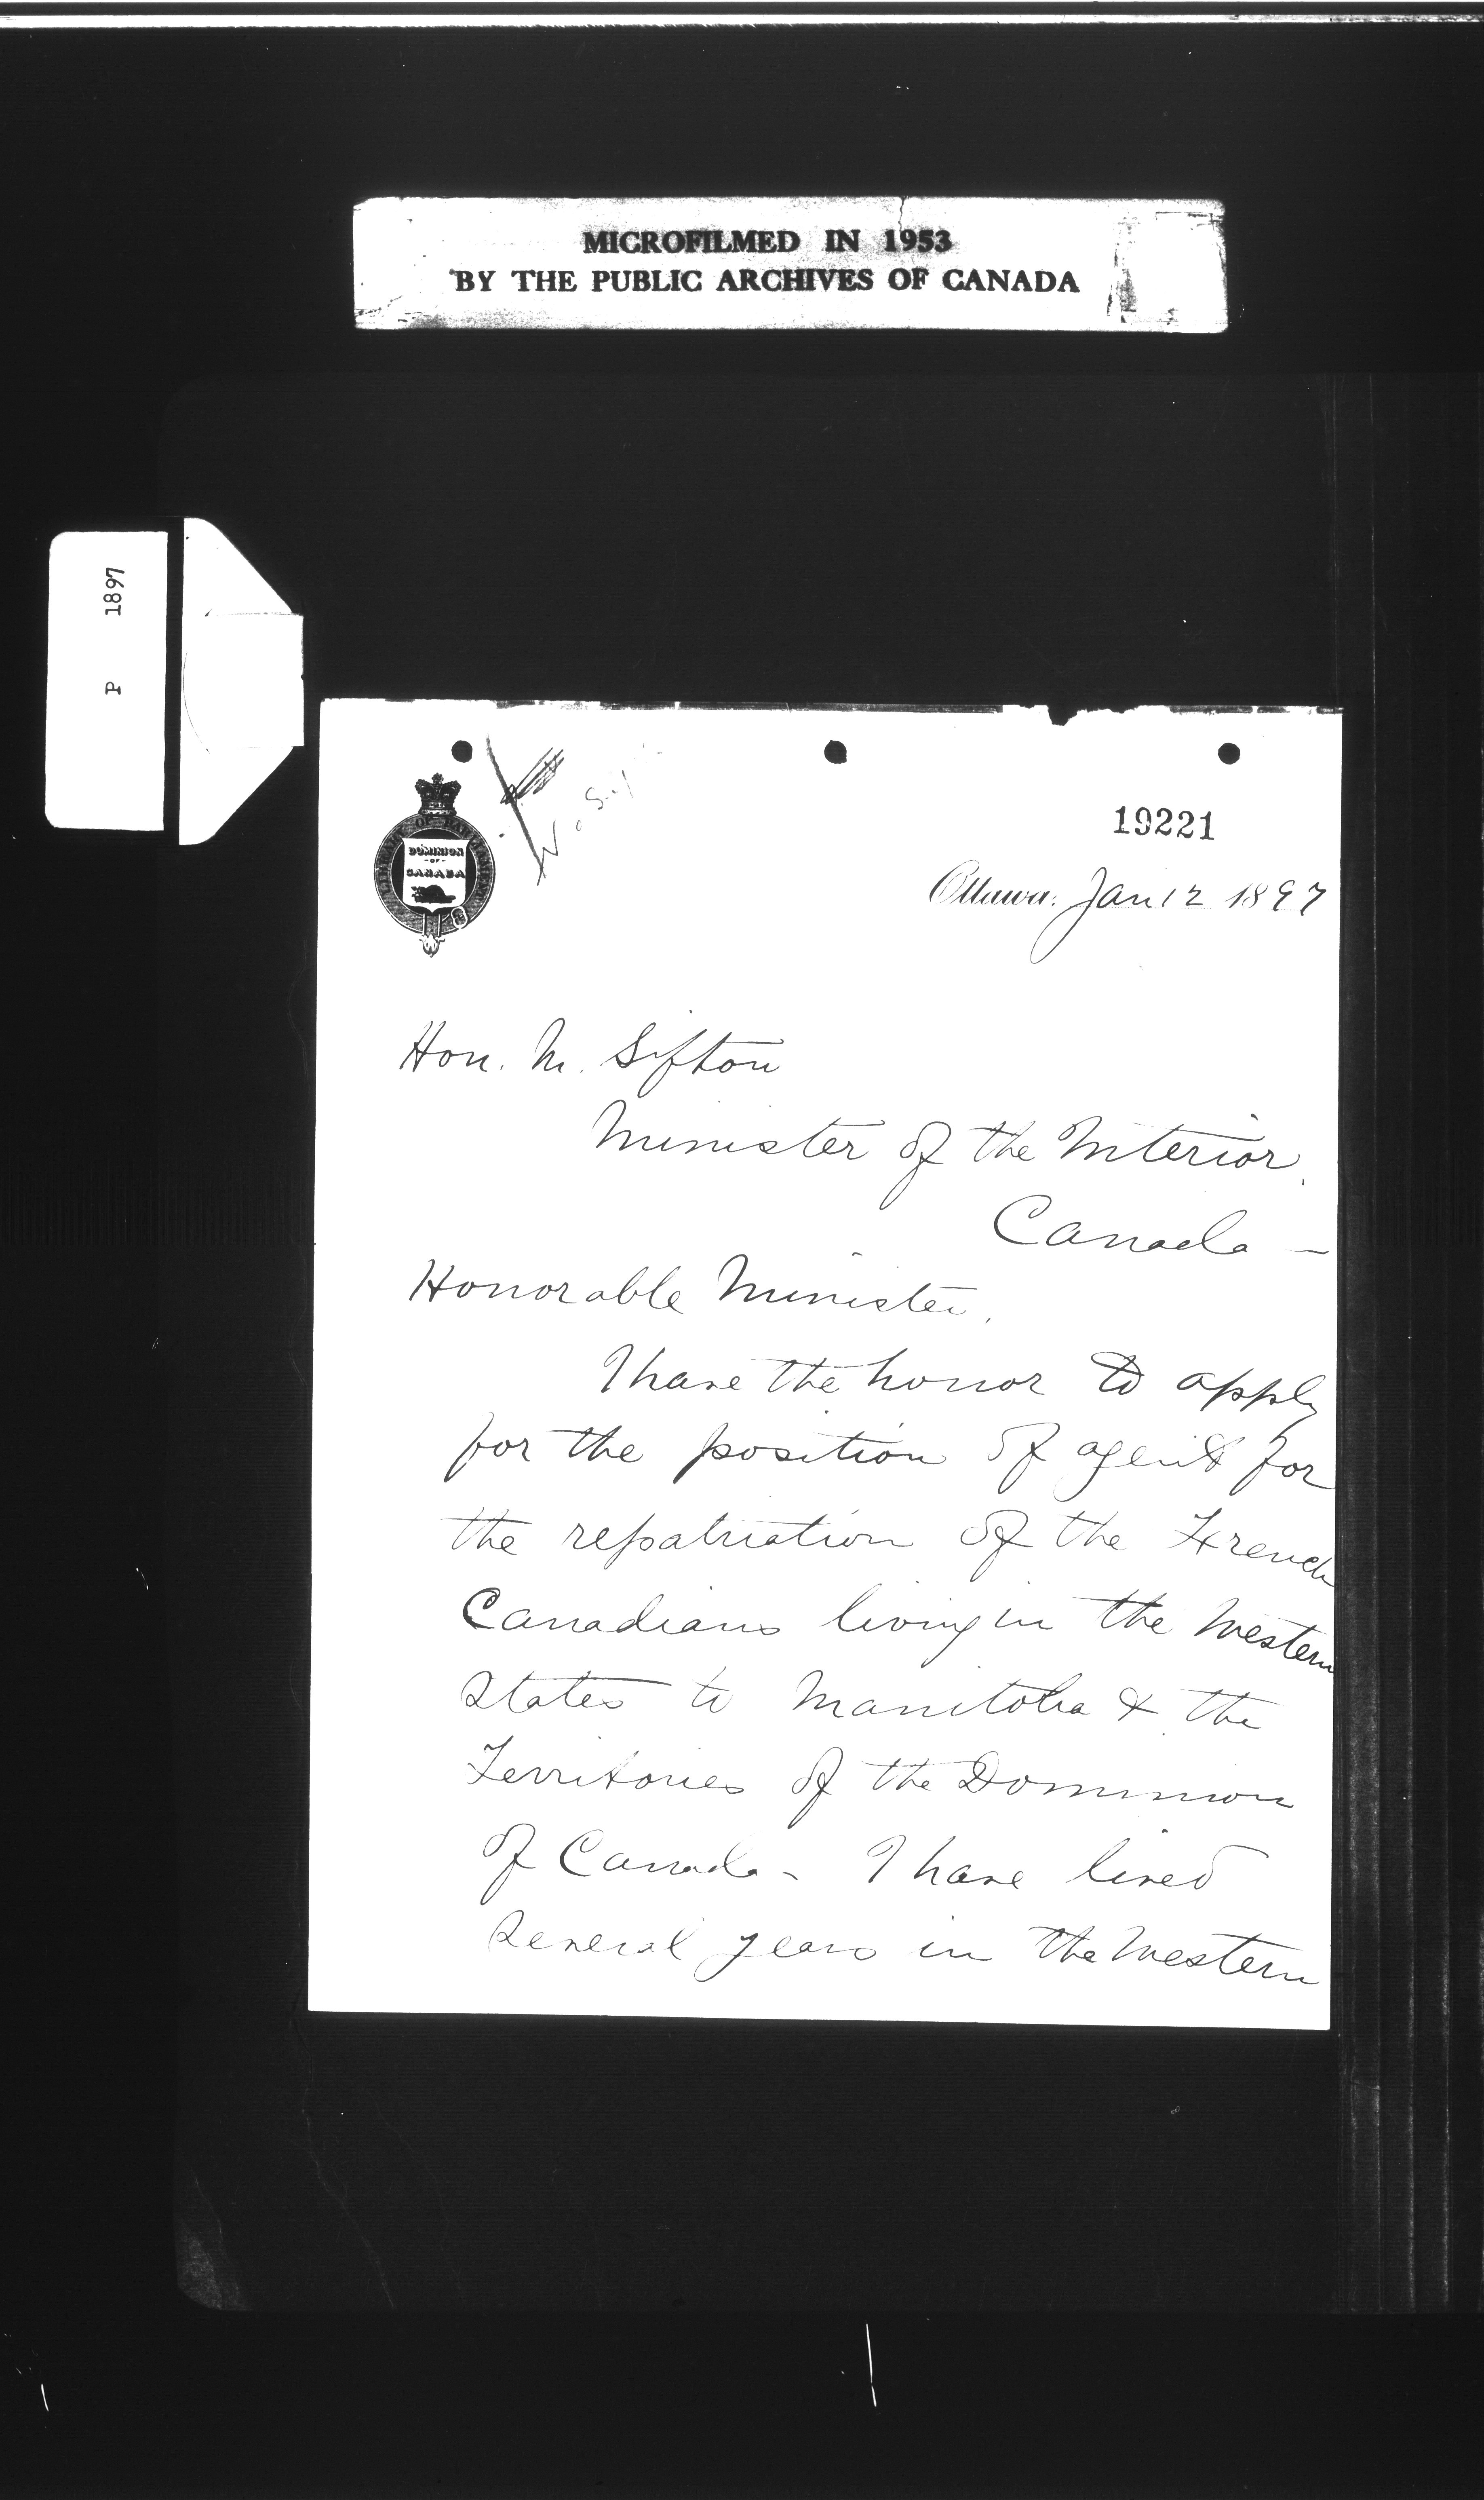 MICROFILMED IN 1953
BY THE PUBLIC ARCHIVES OF CANADA
P 1897
LIBRARY OF PARLIAMENT
DOMINION
OF
CANADA
19221
Ottawa, Jan 12 1897
Hon. M. Sifton
Minister of the Interior.
Canada —
Honorable Minister,
I have the honor to apply
for the position of agent for
the repatriation of the French
Canadians living in the Western
States to Manitoba & the
Territories of the Dominion
of Canada - I have lived
several years in the Western